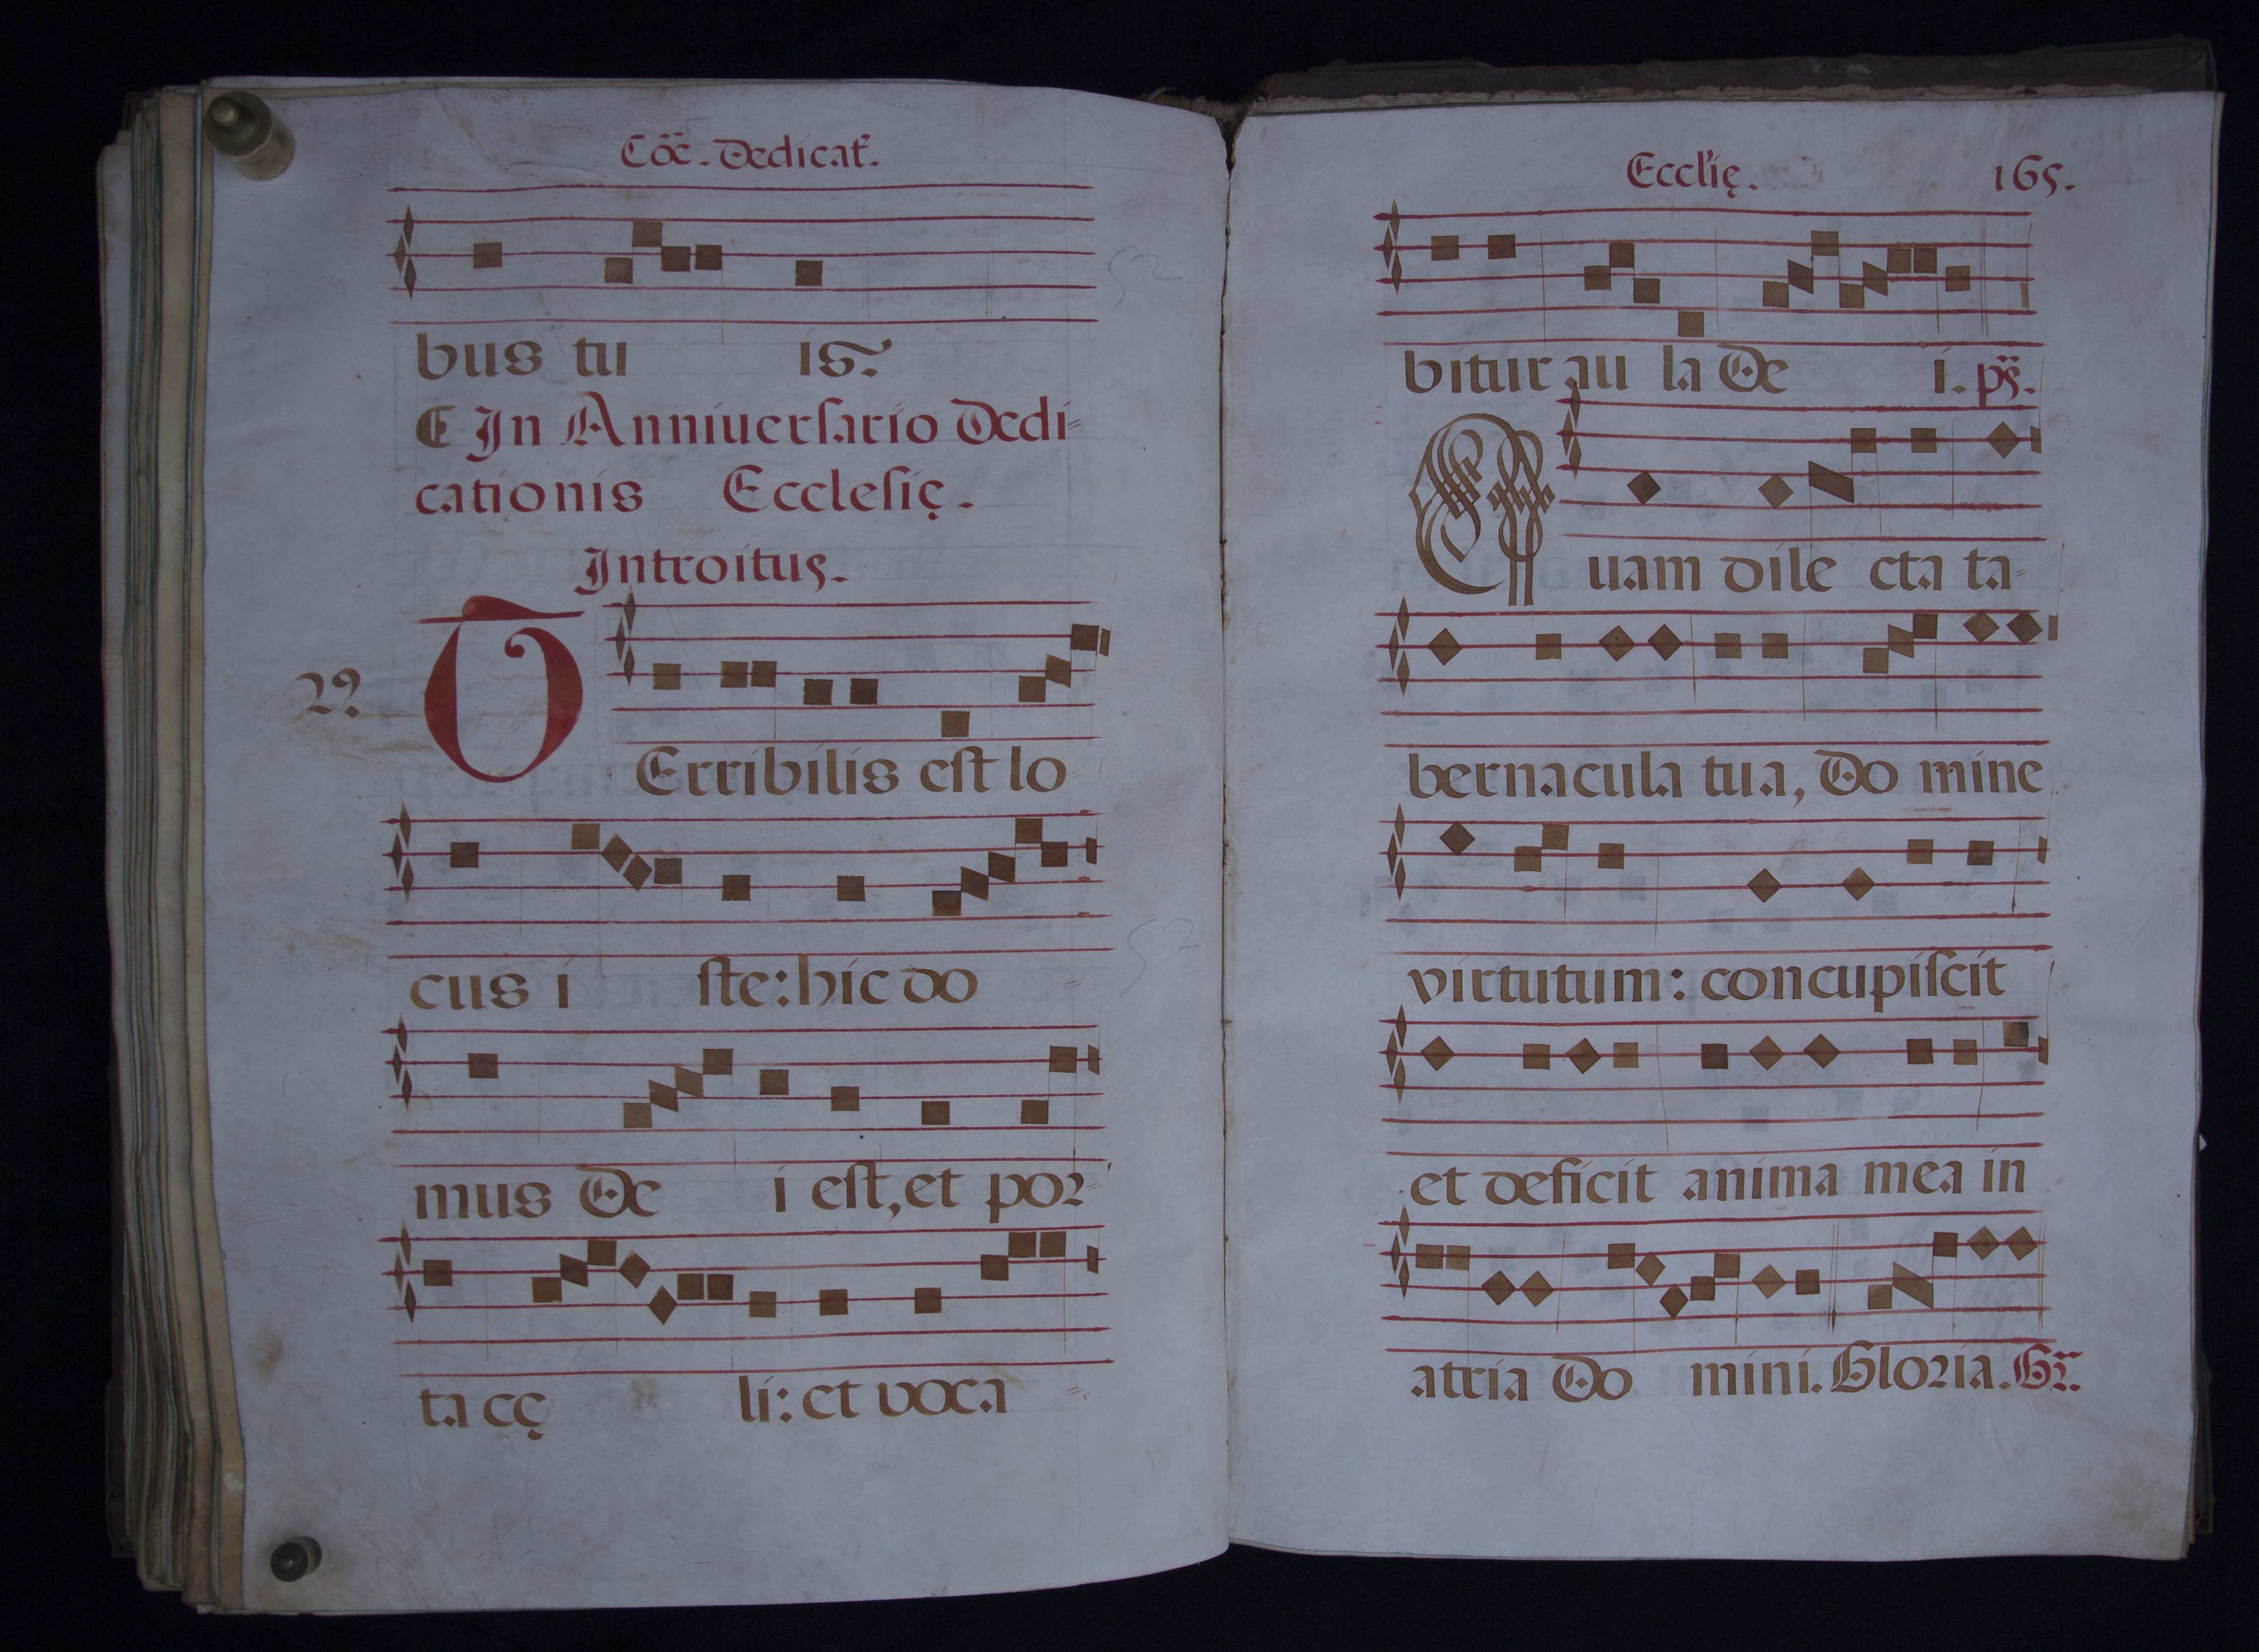 Cōc̄. Dedicat̃.
bus tu is.
¶ In Anniuerſario Dedi=
cationis Eccleſię.
Introitus.
TErribilis eſt lo=
cus i ſte: hic do=
mus De i eſt, et por=
ta cę li: et voca=
Eccl'ię. 165.
bitur au la De i. ps̃.
Quam dile cta ta=
bernacula tua, Do mine
virtutum: concupiſcit
et deficit anima mea in
atria Do mini. Gloria. Gr̃.